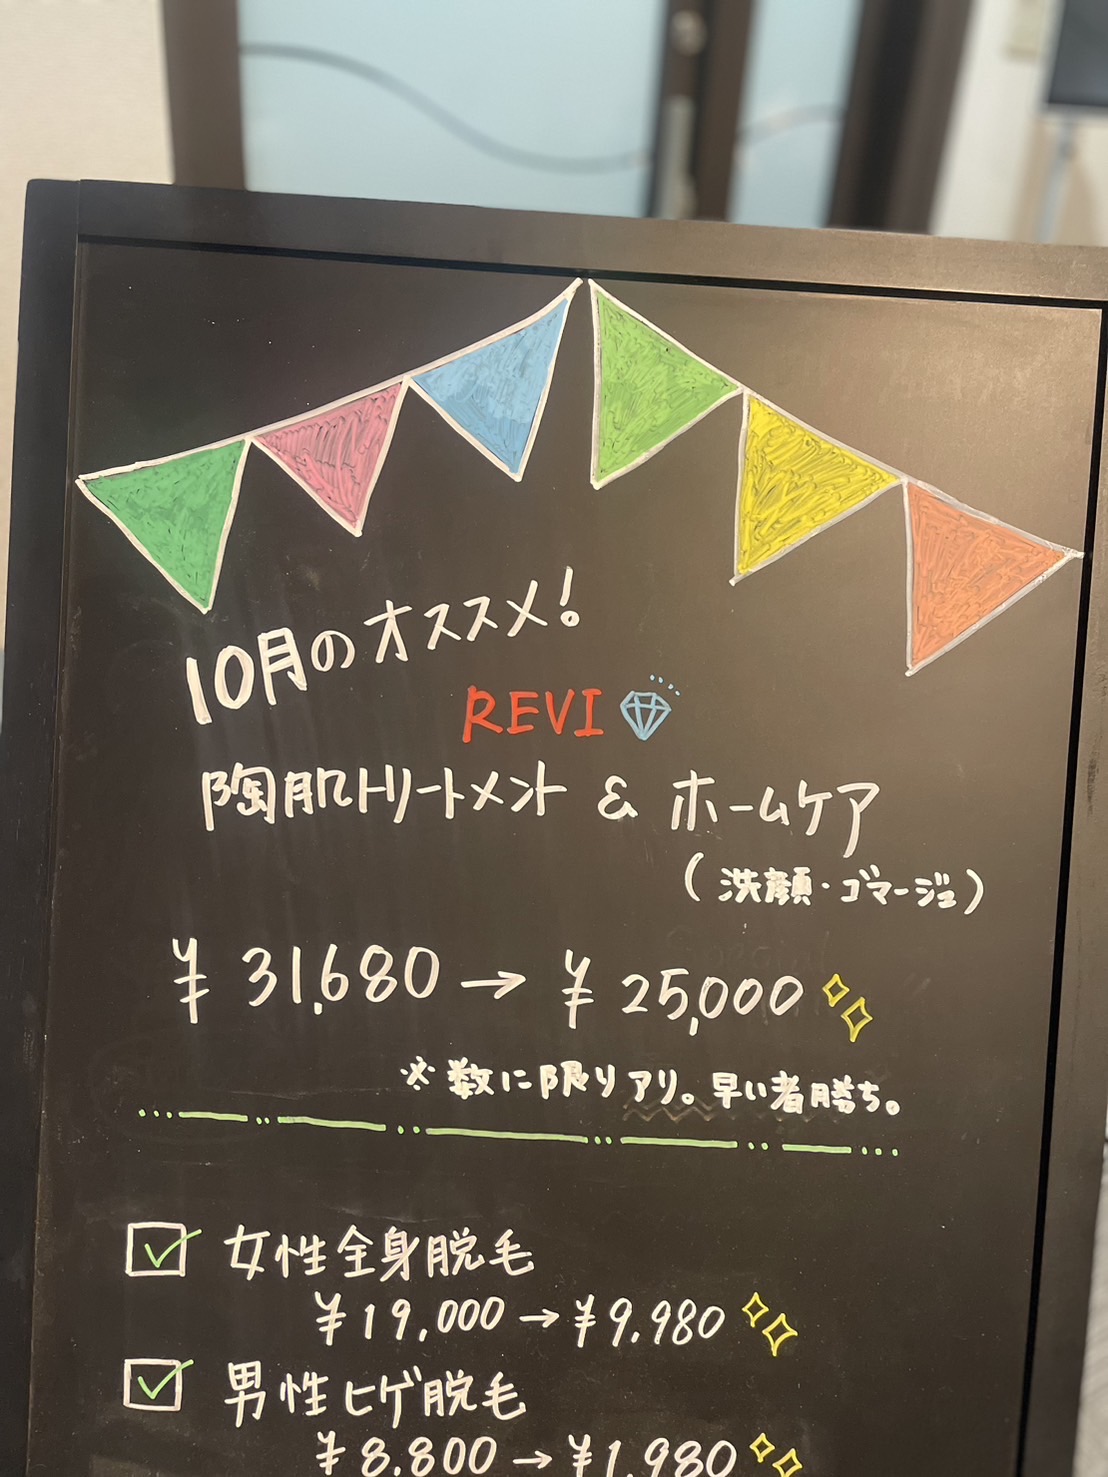 10月のオススメ!
REVI
陶肌トリートメント & ホームケア
(洗顔・ゴマージュ)
¥31,680→¥25,000
※数に限りアリ。早い者勝ち。
女性全身脱毛
¥19,000→¥9,980
男性ヒゲ脱毛
¥8,800→¥1,980